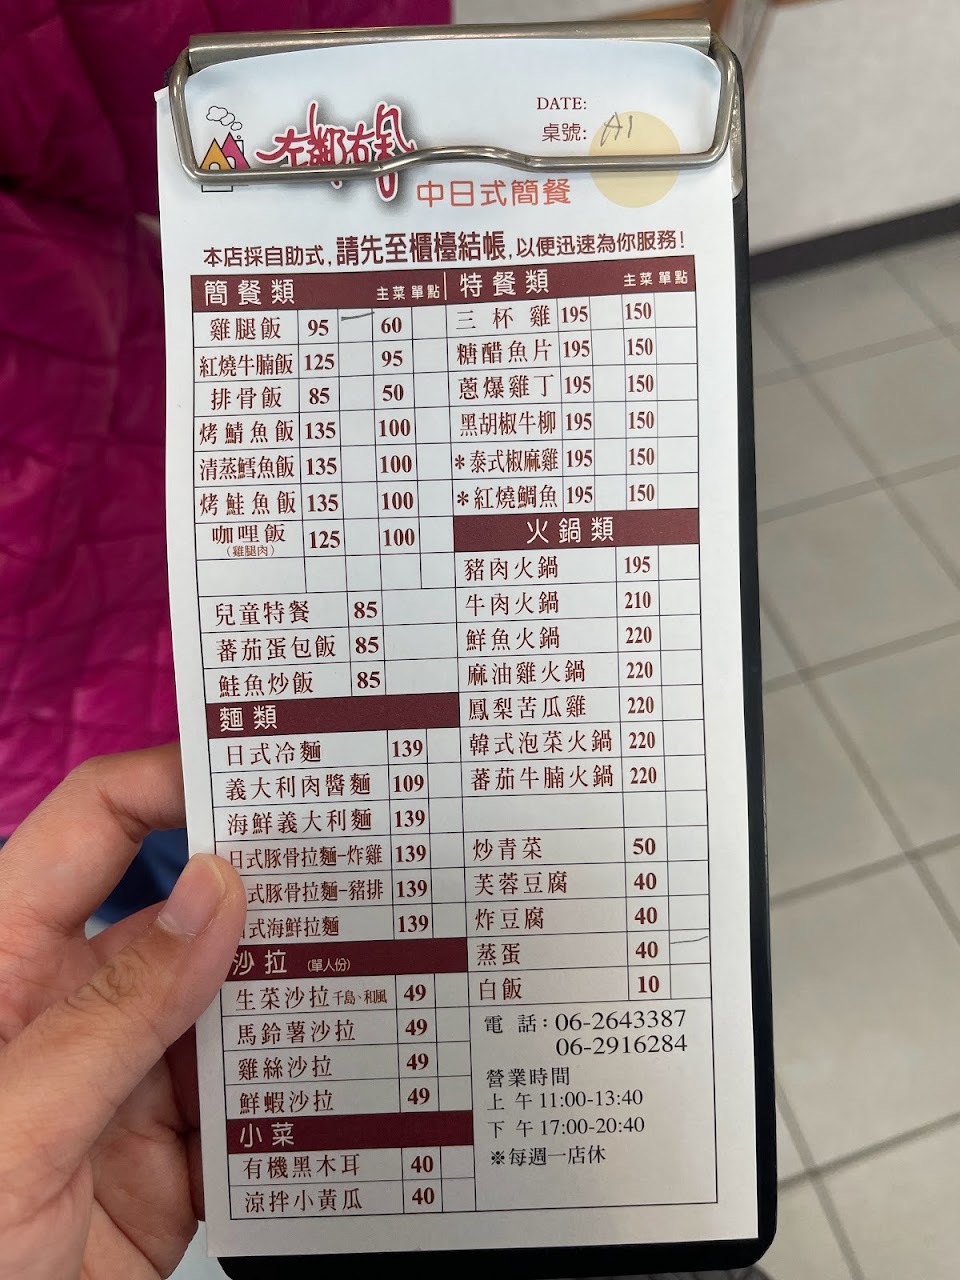 左鄰右舍
DATE:
桌號: A1
中日式簡餐
本店採自助式,請先至櫃檯結帳,以便迅速為你服務!
簡餐類 主菜單點
雞腿飯 95 60
紅燒牛腩飯 125 95
排骨飯 85 50
烤鯖魚飯 135 100
清蒸鱈魚飯 135 100
烤鮭魚飯 135 100
咖哩飯 125 100
(雞腿肉)
兒童特餐 85
蕃茄蛋包飯 85
鮭魚炒飯 85
麵類
日式冷麵 139
義大利肉醬麵 109
海鮮義大利麵 139
日式豚骨拉麵-炸雞 139
式豚骨拉麵-豬排 139
式海鮮拉麵 139
沙拉 (單人份)
生菜沙拉千島、和風 49
馬鈴薯沙拉 49
雞絲沙拉 49
鮮蝦沙拉 49
小菜
有機黑木耳 40
涼拌小黃瓜 40
特餐類 主菜單點
三杯雞 195 150
糖醋魚片 195 150
蔥爆雞丁 195 150
黑胡椒牛柳 195 150
*泰式椒麻雞 195 150
*紅燒鯛魚 195 150
火鍋類
豬肉火鍋 195
牛肉火鍋 210
鮮魚火鍋 220
麻油雞火鍋 220
鳳梨苦瓜雞 220
韓式泡菜火鍋 220
蕃茄牛腩火鍋 220
炒青菜 50
芙蓉豆腐 40
炸豆腐 40
蒸蛋 40
白飯 10
電話:06-2643387
06-2916284
營業時間
上午11:00-13:40
下午17:00-20:40
※每週一店休